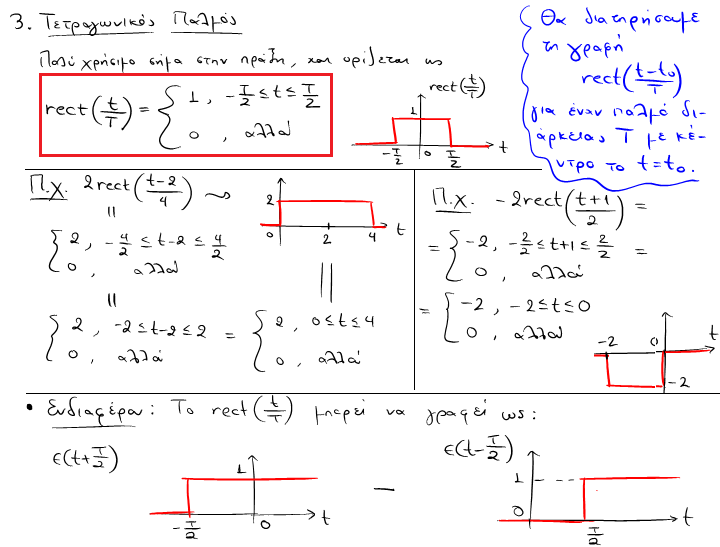 3. Τετραγωνικός Παλμός
Πολύ χρήσιμο σήμα στην πράξη, και ορίζεται ως
rect(t/T) = { 1 , -T/2 ≤ t ≤ T/2
0 , αλλού
rect(t/T)
1
-T/2 0 T/2 t
Θα διατηρήσουμε
τη γραφή
rect((t-t₀)/T)
για έναν παλμό δι-
άρκειας T με κέ-
ντρο το t=t₀.
Π.χ. 2rect((t-2)/4) ⤳
2
0 2 4 t
=
{ 2 , -4/2 ≤ t-2 ≤ 4/2
0 , αλλού
=
{ 2 , -2 ≤ t-2 ≤ 2
0 , αλλού
= { 2 , 0 ≤ t ≤ 4
0 , αλλού
=
Π.χ. -2rect((t+1)/2) =
= { -2 , -2/2 ≤ t+1 ≤ 2/2 =
0 , αλλού
= { -2 , -2 ≤ t ≤ 0
0 , αλλού
-2 0 t
-2
• Ενδιαφέρον: Το rect(t/T) μπορεί να γραφεί ως:
ε(t+T/2)
1
-T/2 0 t
−
ε(t-T/2)
1
0 T/2 t